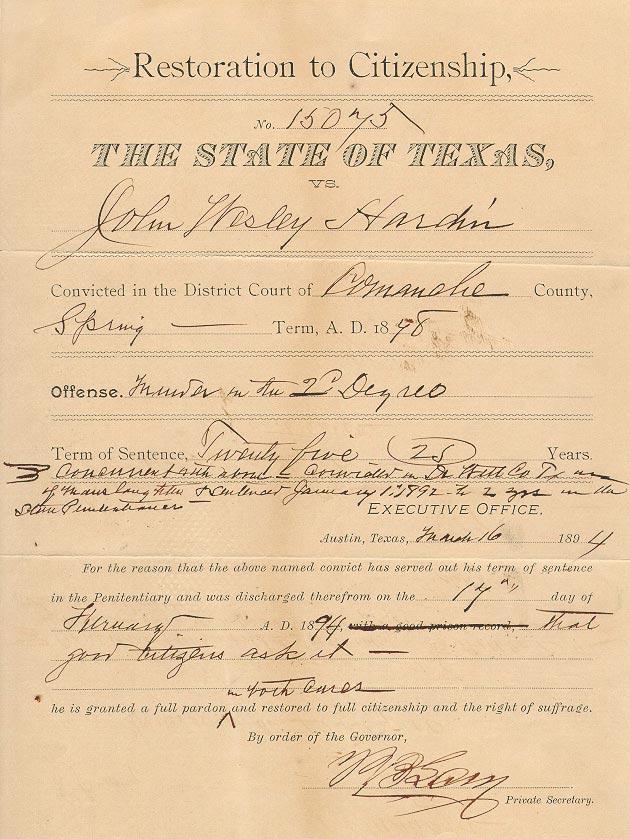 Restoration to Citizenship,
No. 15075
THE STATE OF TEXAS,
VS.
John Wesley Hardin
Convicted in the District Court of Comanche County,
Spring — Term, A. D. 1898
Offense. Murder in the 2d Degree
Term of Sentence, Twenty five (25) Years.
Concurrent with above – Convicted in De Witt Co. Tx
of manslaughter & sentenced January 1st 1892 to 2 yrs in the
State Penitentiary
EXECUTIVE OFFICE.
Austin, Texas, March 16 1894
For the reason that the above named convict has served out his term of sentence
in the Penitentiary and was discharged therefrom on the 17th day of
February A. D. 1894, with a good prison record, that
good citizens ask it —
in both cases
he is granted a full pardon and restored to full citizenship and the right of suffrage.
By order of the Governor,
Private Secretary.